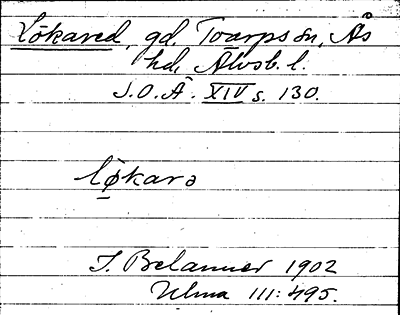 Lökared, gd, Toarps sn, Ås
hd, Älvsb. l.
S.O.Ä. XIV s. 130.
lø̱karə
I. Belanner 1902
Ulma 111:495.